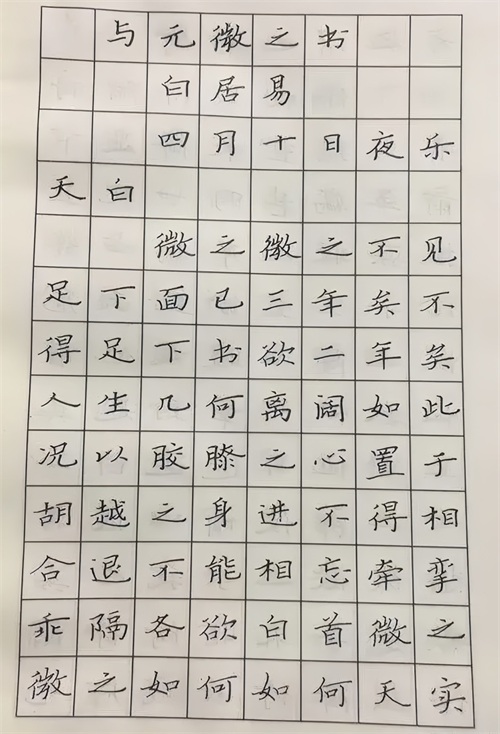 与元微之书
白居易
四月十日夜乐
天白
微之微之不见
足下面已三年矣不
得足下书欲二年矣
人生几何离阔如此
况以胶膝之心置于
胡越之身进不得相
合退不能相忘牵挛
乖隔各欲白首微之
微之如何如何天实